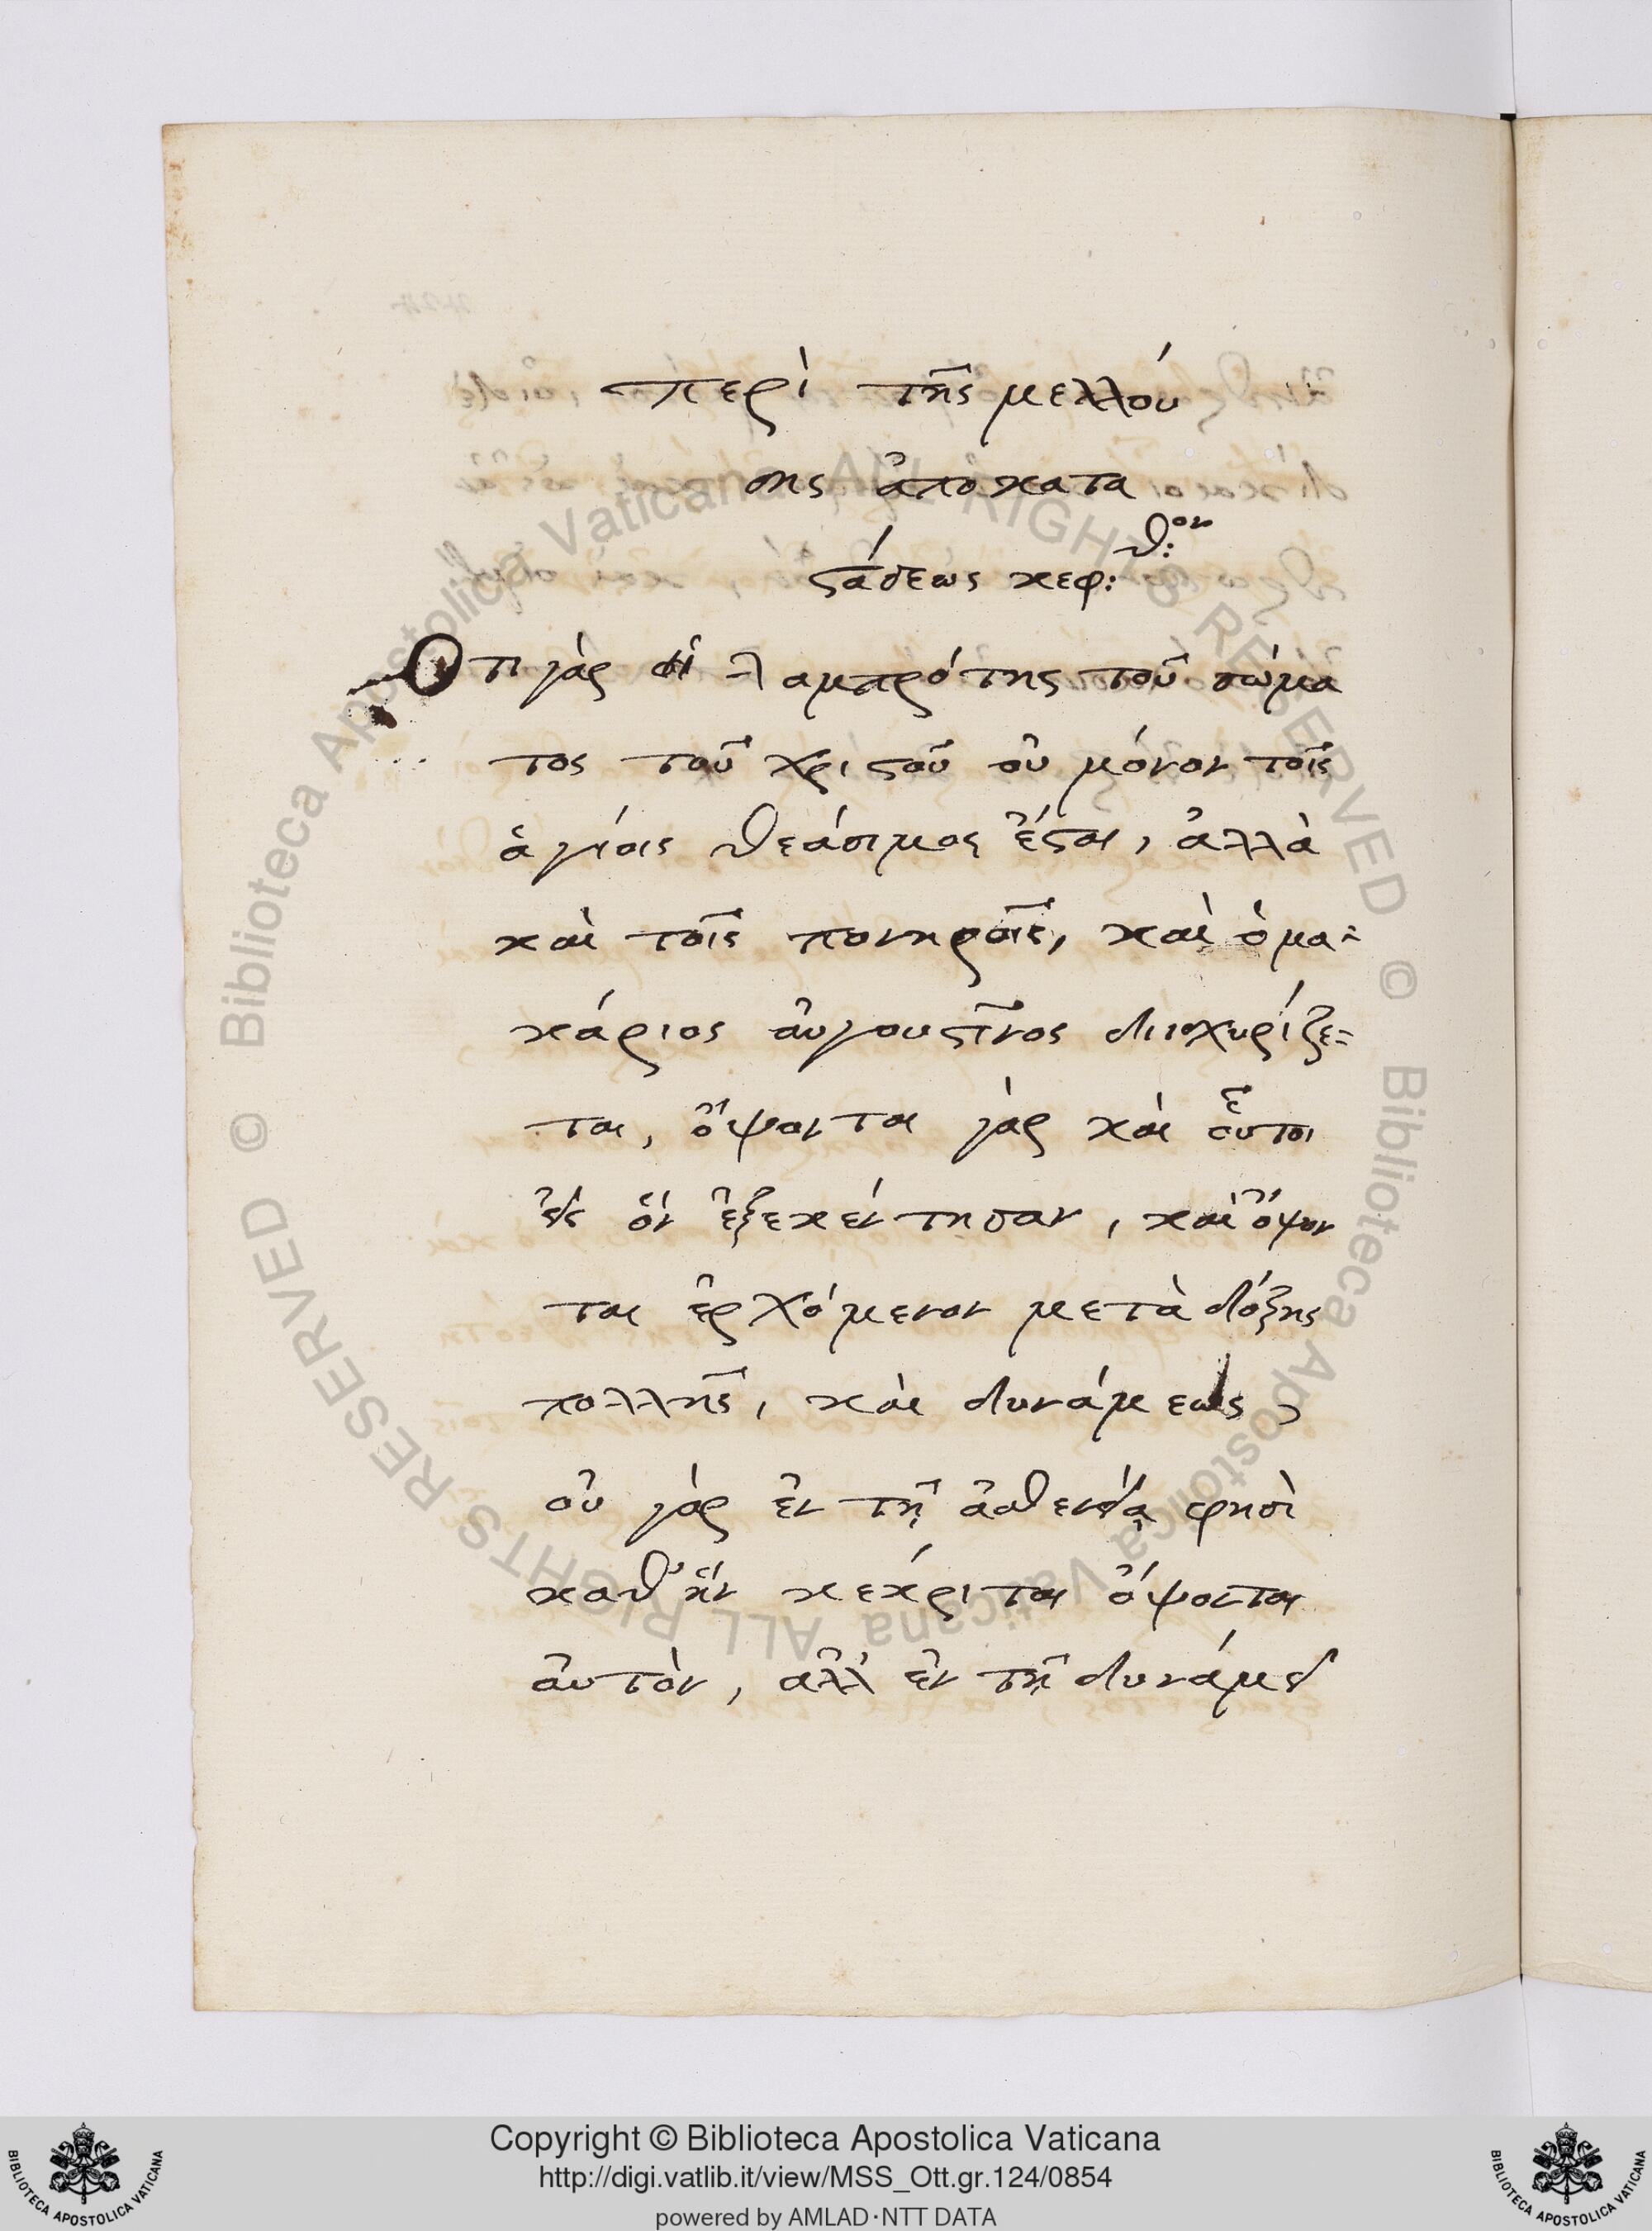 περὶ τῆς μελλού
σης ἀποκατα
στάσεως κεφ: θ:ον
Ὅτι γὰρ ἡ λαμπρότης τοῦ σώμα
τος τοῦ χριστοῦ οὐ μόνον τοῖς
ἁγίοις θεάσιμος ἔσται, ἀλλὰ
καὶ τοῖς πονηροῖς, καὶ ὁ μα=
κάριος αὐγουστῖνος διισχυρίζε=
ται, ὄψονται γὰρ καὶ οὗτοι
εἰς ὃν ἐξεκέντησαν, καὶ ὄψον
ται ἐρχόμενον μετὰ δόξης
πολλῆς, καὶ δυνάμεως,
οὐ γὰρ ἐν τῇ ἀσθενείᾳ φησὶ
καθ' ἣν κέκριται ὄψονται
αὐτὸν, ἀλλ' ἐν τῇ δυνάμει
© Biblioteca Apostolica Vaticana ALL RIGHTS RESERVED
© Biblioteca Apostolica Vaticana ALL RIGHTS RESERVED
Copyright © Biblioteca Apostolica Vaticana
http://digi.vatlib.it/view/MSS_Ott.gr.124/0854
powered by AMLAD·NTT DATA
BIBLIOTECA APOSTOLICA VATICANA
BIBLIOTECA APOSTOLICA VATICANA